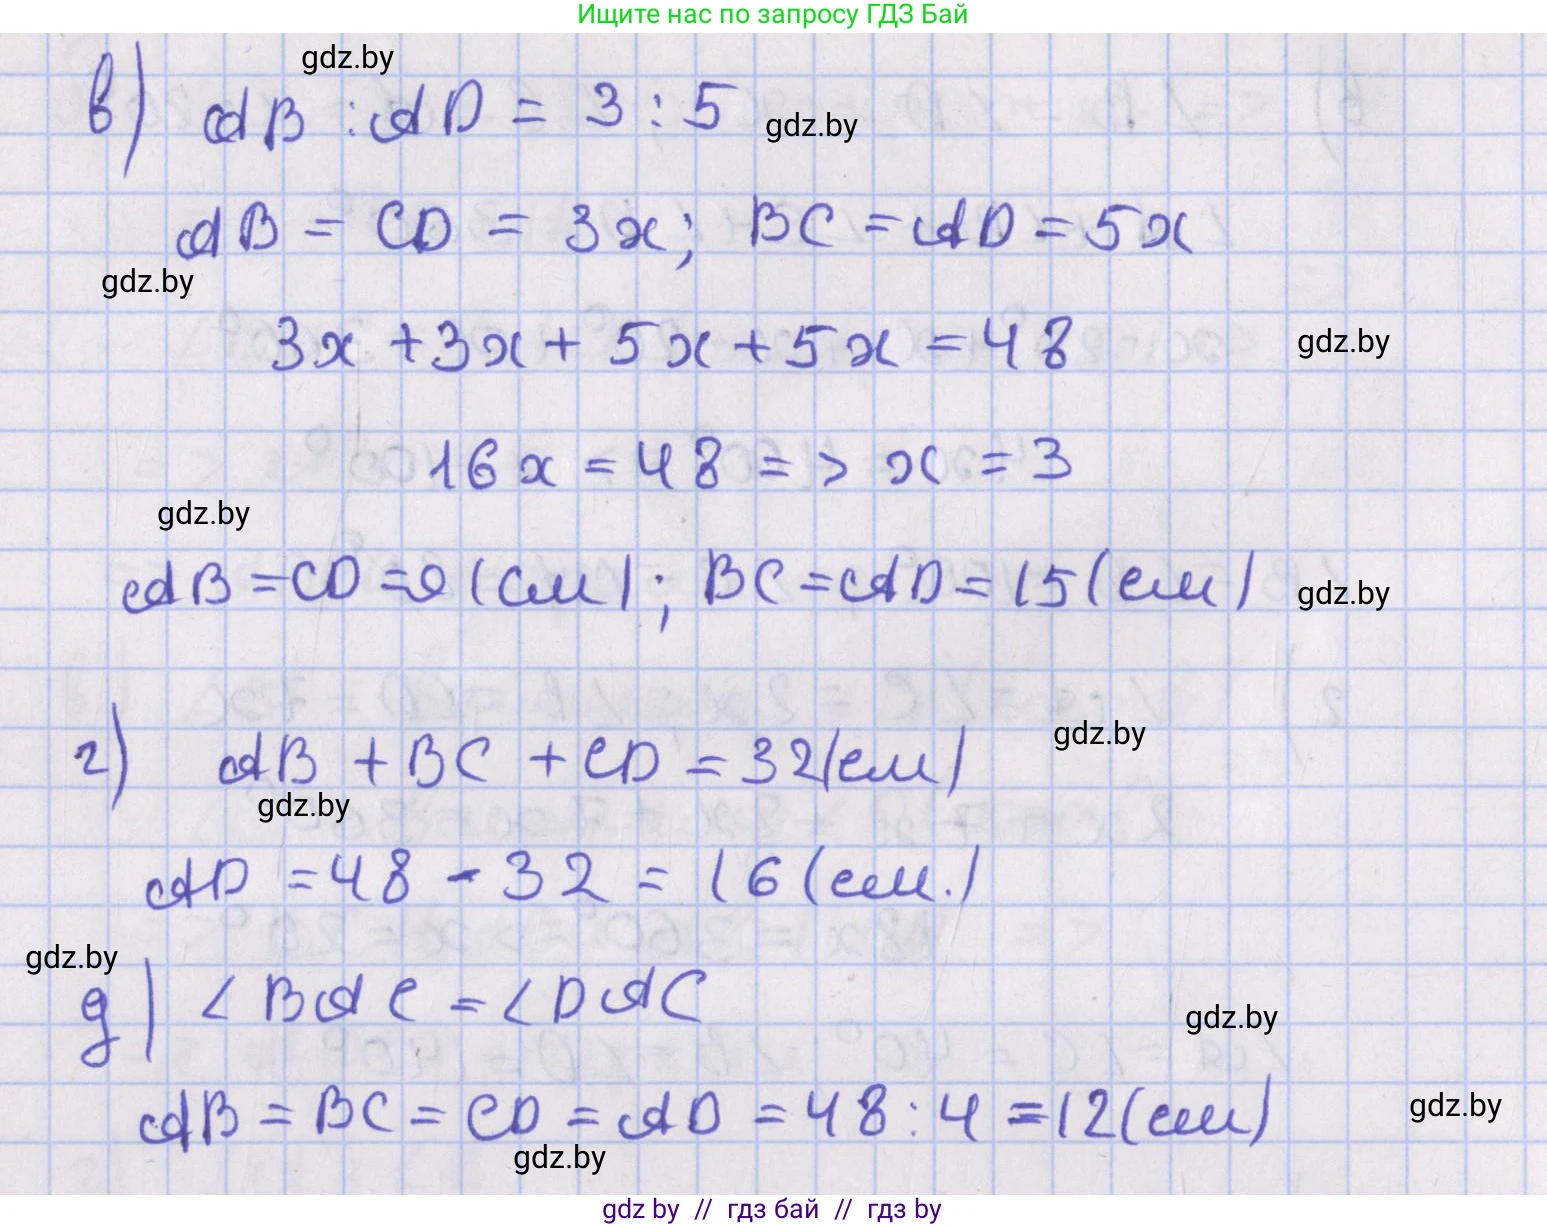 Ищите нас по запросу ГДЗ Бай
gdz.by
в) AB : AD = 3 : 5
gdz.by
AB = CD = 3x; BC = AD = 5x
gdz.by
3x + 3x + 5x + 5x = 48
gdz.by
16x = 48 => x = 3
gdz.by
AB = CD = 9 (см); BC = AD = 15 (см)
gdz.by
gdz.by
г) AB + BC + CD = 32 (см)
gdz.by
AD = 48 - 32 = 16 (см.)
gdz.by
д) ∠BAC = ∠DAC
gdz.by
AB = BC = CD = AD = 48 : 4 = 12 (см)
gdz.by
gdz.by
gdz by // гдз бай // гдз by